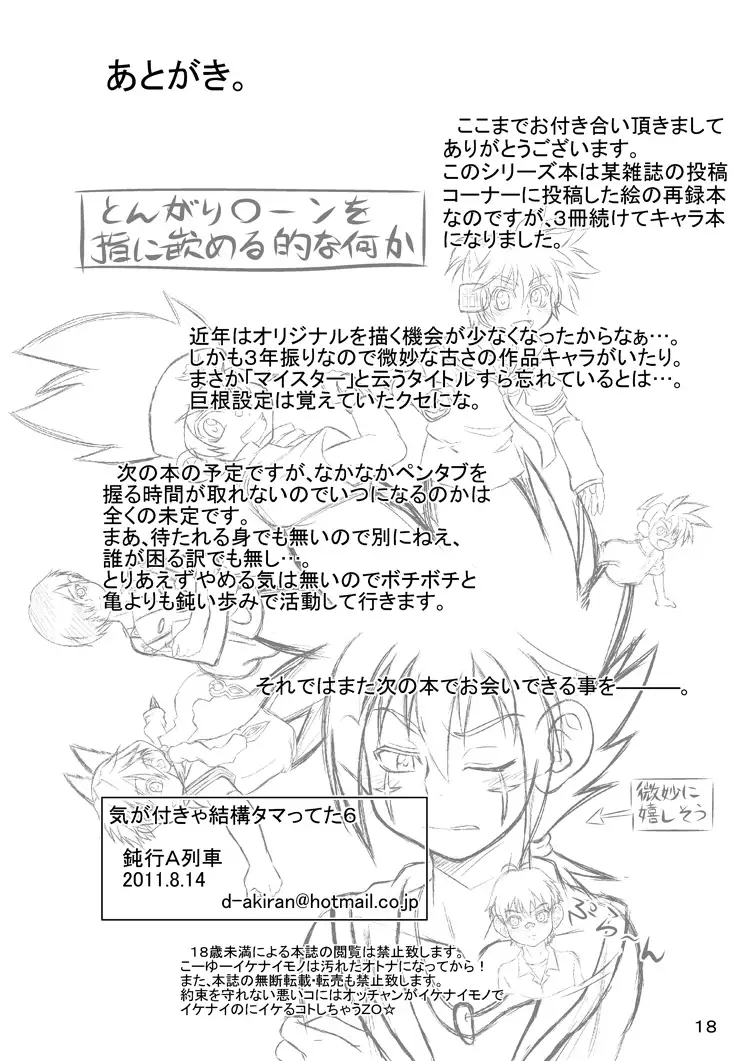 あとがき。
ここまでお付き合い頂きまして
ありがとうございます。
このシリーズ本は某雑誌の投稿
コーナーに投稿した絵の再録本
なのですが、3冊続けてキャラ本
になりました。
とんがり〇ーンを
指に嵌める的な何か
近年はオリジナルを描く機会が少なくなったからなぁ…。
しかも3年振りなので微妙な古さの作品キャラがいたり。
まさか「マイスター」と云うタイトルすら忘れているとは…。
巨根設定は覚えていたクセにな。
次の本の予定ですが、なかなかペンタブを
握る時間が取れないのでいつになるのかは
全くの未定です。
まあ、待たれる身でも無いので別にねえ、
誰が困る訳でも無し…。
とりあえずやめる気は無いのでボチボチと
亀よりも鈍い歩みで活動して行きます。
それではまた次の本でお会いできる事を―――。
微妙に
嬉しそう
気が付きゃ結構タマってた6
鈍行A列車
2011.8.14
d-akiran@hotmail.co.jp
ぷら～ん
18歳未満による本誌の閲覧は禁止致します。
こーゆーイケナイモノは汚れたオトナになってから！
また、本誌の無断転載・転売も禁止致します。
約束を守れない悪いコにはオッチャンがイケナイモノで
イケナイのにイケるコトしちゃうZO☆
18